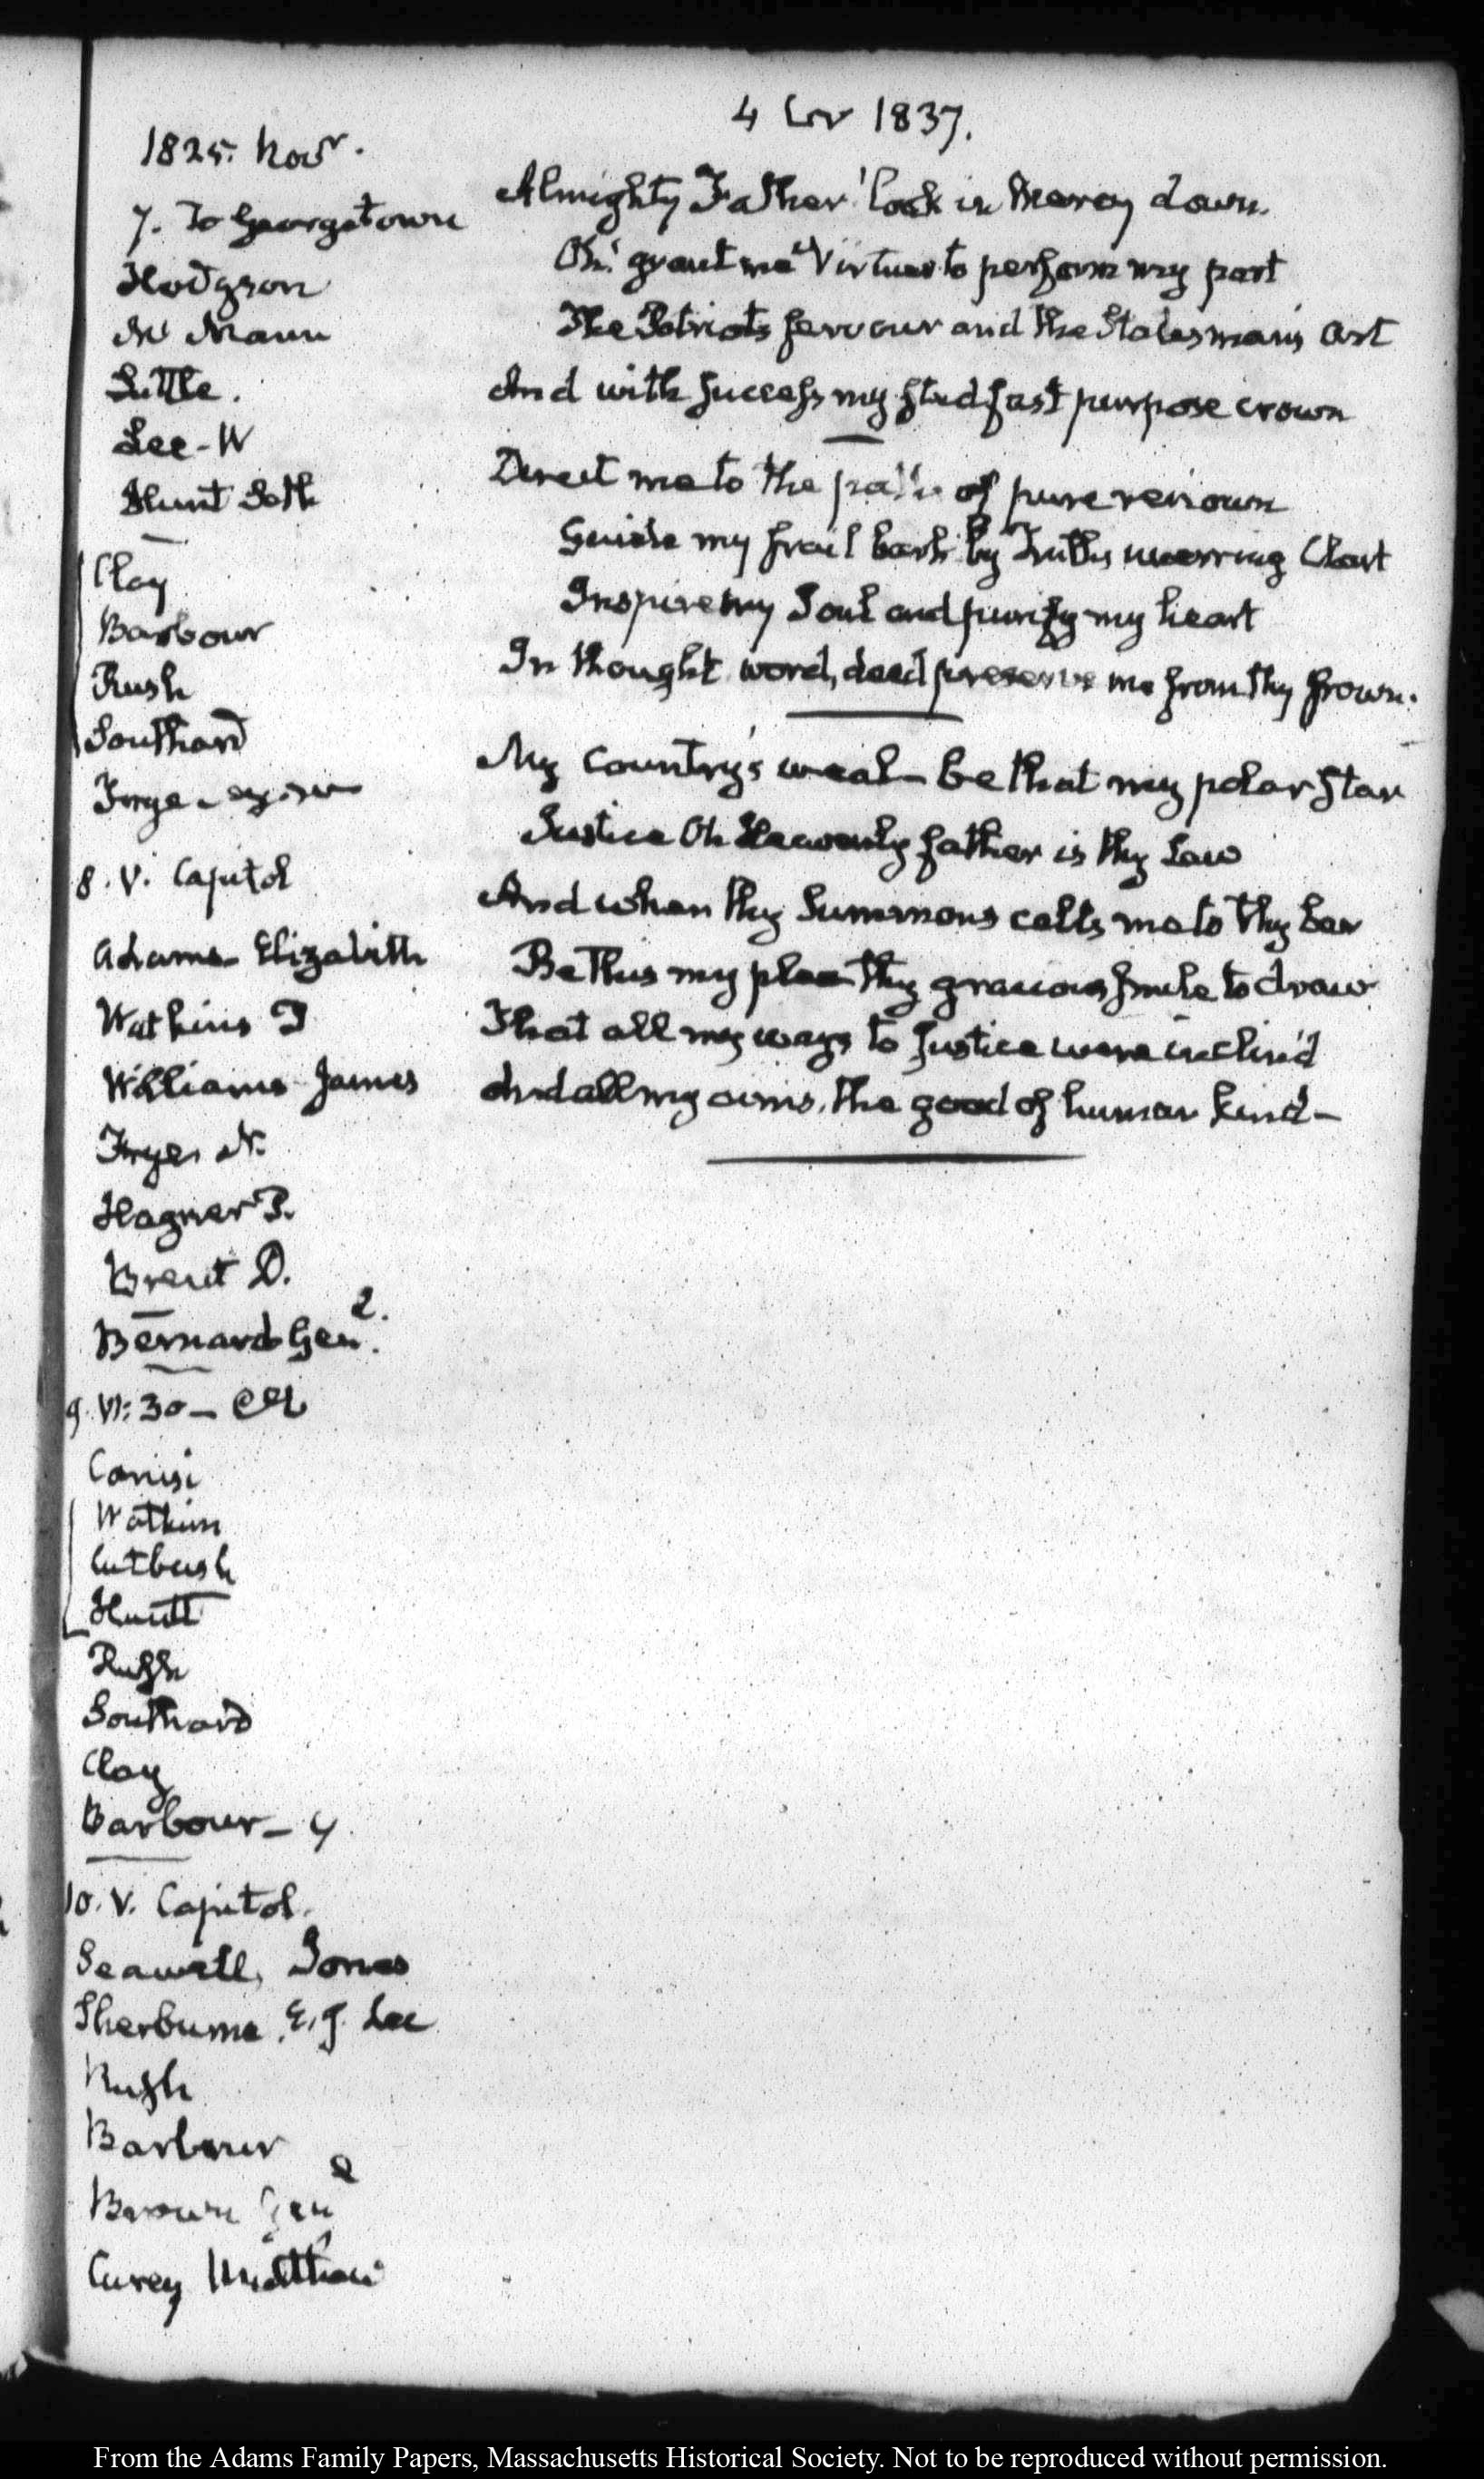 1825. Novr.
7. To Georgetown
Hodgson
Mann
Little.
Lee - W
Hunt Seth
Clay
Barbour
Rush
Southard
Frye
8. V. Capitol
Adams Elizabeth
Watkins T
Williams James
Frye N.
Hagner P.
Brent D.
Bernard Genl. 2.
9. VI: 30 —
Canisi
Watkins
Cutbush
Huntt
Rush
Southard
Clay
Barbour — 4
10. V. Capitol.
Seawell, Jones
Sherburne, E. J. Lee
Rush
Barbour
Brown Genl
Carey Matthew
4 1837.
Almighty Father! look in Mercy down.
Oh! grant me Virtue to perform my part
The Patriots fervour and the Statesman's Art
And with success my stedfast purpose crown
Direct me to the paths of pure renown
Guide my frail bark by Truth's unerring Chart
Inspire my Soul and purify my heart
In thought word, deed preserve me from thy frown.
My Country's weal — be that my polar Star
Justice Oh Heavenly father is thy Law
And when thy Summons calls me to thy bar
Be this my plea thy gracious smile to draw
That all my ways to Justice were inclin'd
And all my aims, the good of human kind —
From the Adams Family Papers, Massachusetts Historical Society. Not to be reproduced without permission.